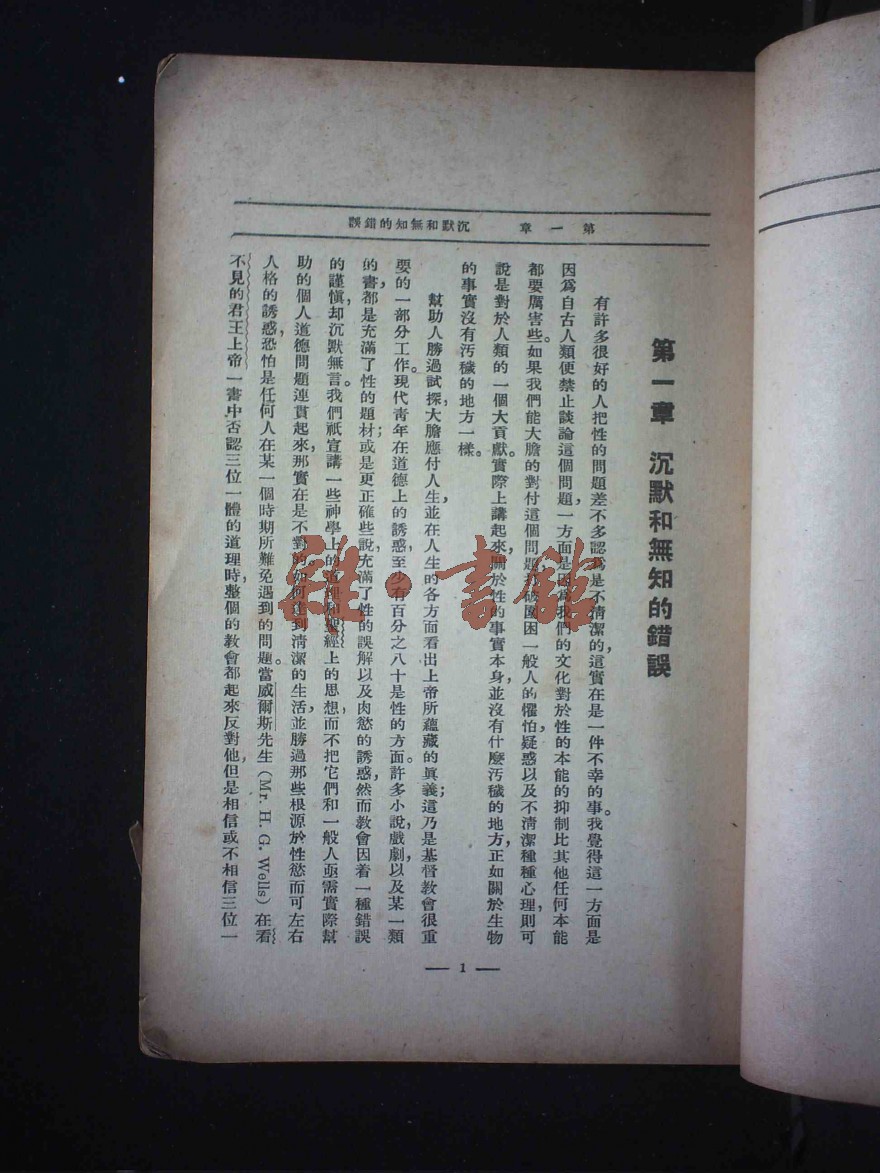 第一章　沉默和無知的錯誤
第一章 沉默和無知的錯誤
有許多很好的人把性的問題差不多認爲是不清潔的，這實在是一件不幸的事。我覺得這一方面是
因爲自古人類便禁止談論這個問題，一方面是因爲我們的文化對於性的本能的抑制比其他任何本能
都要厲害些。如果我們能大膽的對付這個問題，打破圍困一般人的懼怕疑惑以及不清潔種種心理，則可
說是對於人類的一個大貢獻。實際上講起來，關於性的事實本身，並沒有什麼汚穢的地方，正如關於生物
的事實沒有汚穢的地方一樣。
幫助人勝過試探，大膽應付人生，並在人生的各方面看出上帝所蘊藏的眞義；這乃是基督敎會很重
要的一部分工作。現代靑年在道德上的誘惑，至少有百分之八十是性的方面。許多小說，戲劇，以及某一類
的書都是充滿了性的題材；或是更正確些說，充滿了性的誤解以及肉慾的誘惑，然而敎會因着一種錯誤
的謹愼，却沉默無言。我們祇宣講一些神學上的道理和聖經上的思想，而不把它們和一般人亟需實際幫
助的個人道德問題連貫起來，那實在是不對的。如何達到淸潔的生活，並勝過那些根源於性慾而可左右
人格的誘惑，恐怕是任何人在某一個時期所難免遇到的問題。當威爾斯先生（Mr. H. G. Wells）在看
不見的君王上帝一書中否認三位一體的道理時，整個的敎會都起來反對他，但是相信或不相信三位一
— 1 —
雜·書館